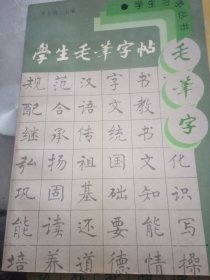 主编
学生
丛书
學生毛筆字帖
毛筆字
规范汉字书
配合语文教
继承传统书
弘扬祖国文化
巩固基础知识
能读还要能写
培养道德情操